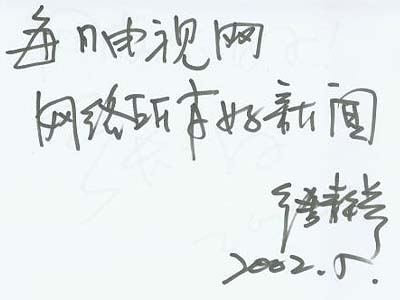 每日电视网
网络所有好新闻
2002.5.